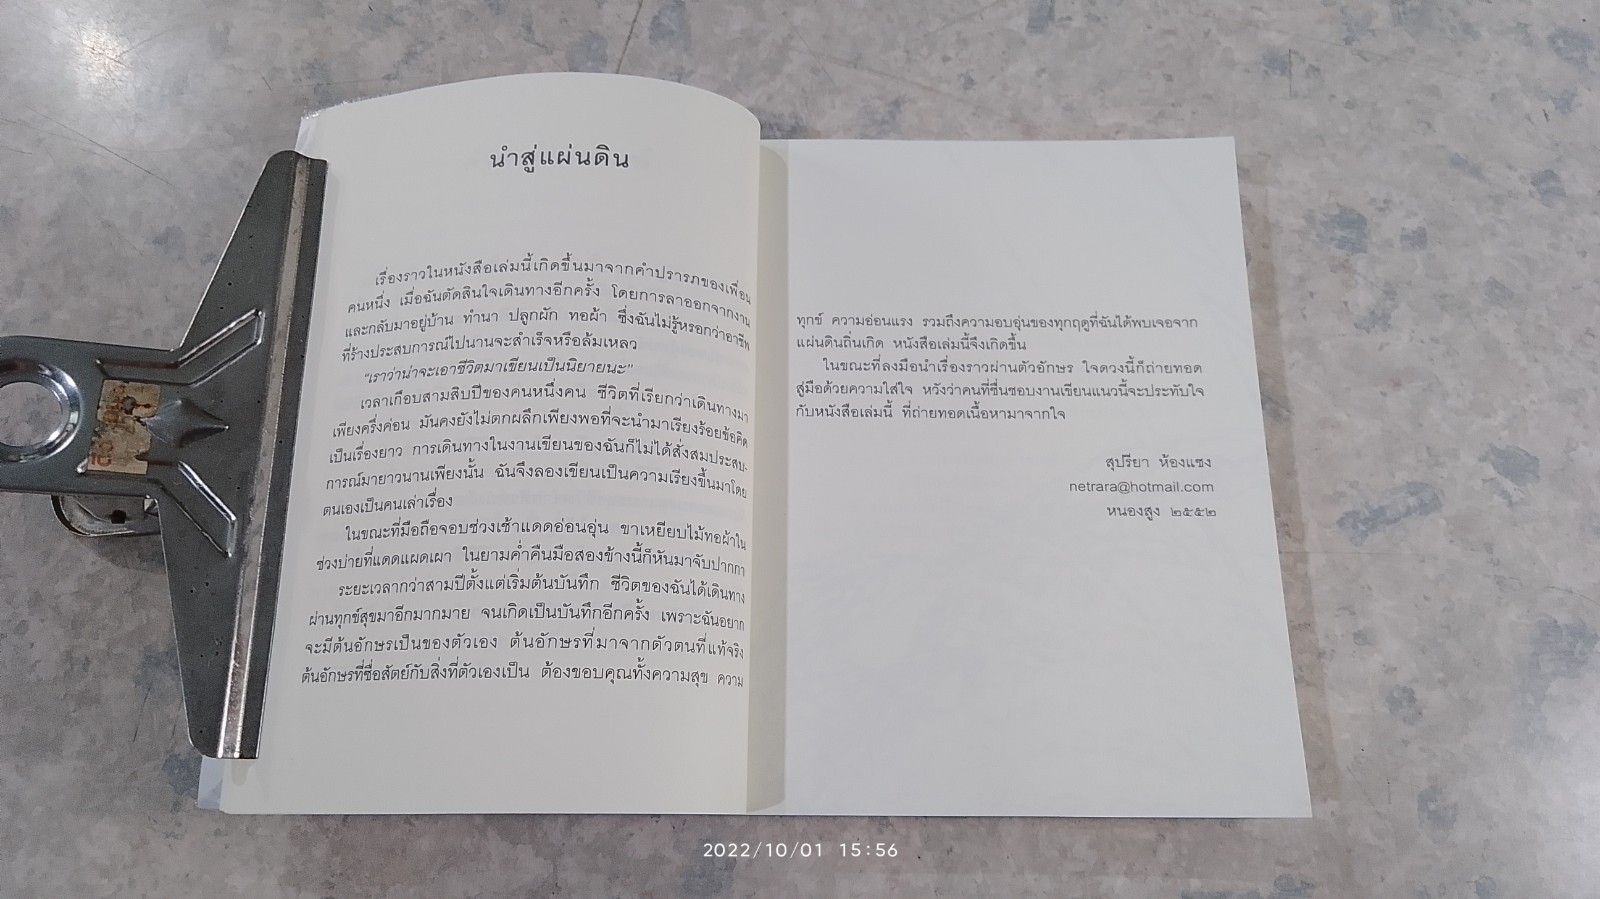 นำสู่แผ่นดิน
เรื่องราวในหนังสือเล่มนี้เกิดขึ้นมาจากคำปรารภของเพื่อน
คนหนึ่ง เมื่อฉันตัดสินใจเดินทางอีกครั้ง โดยการลาออกจากงาน
และกลับมาอยู่บ้าน ทำนา ปลูกผัก ทอผ้า ซึ่งฉันไม่รู้หรอกว่าอาชีพ
ที่ร้างประสบการณ์ไปนานจะสำเร็จหรือล้มเหลว
“เราว่าน่าจะเอาชีวิตมาเขียนเป็นนิยายนะ”
เวลาเกือบสามสิบปีของคนหนึ่งคน ชีวิตที่เรียกว่าเดินทางมา
เพียงครึ่งค่อน มันคงยังไม่ตกผลึกเพียงพอที่จะนำมาเรียงร้อยข้อคิด
เป็นเรื่องยาว การเดินทางในงานเขียนของฉันก็ไม่ได้สั่งสมประสบ-
การณ์มายาวนานเพียงนั้น ฉันจึงลองเขียนเป็นความเรียงขึ้นมาโดย
ตนเองเป็นคนเล่าเรื่อง
ในขณะที่มือถือจอบช่วงเช้าแดดอ่อนอุ่น ขาเหยียบไม้ทอผ้าใน
ช่วงบ่ายที่แดดแผดเผา ในยามค่ำคืนมือสองข้างนี้ก็หันมาจับปากกา
ระยะเวลากว่าสามปีตั้งแต่เริ่มต้นบันทึก ชีวิตของฉันได้เดินทาง
ผ่านทุกข์สุขมาอีกมากมาย จนเกิดเป็นบันทึกอีกครั้ง เพราะฉันอยาก
จะมีต้นอักษรเป็นของตัวเอง ต้นอักษรที่มาจากตัวตนที่แท้จริง
ต้นอักษรที่ซื่อสัตย์กับสิ่งที่ตัวเองเป็น ต้องขอบคุณทั้งความสุข ความ
ทุกข์ ความอ่อนแรง รวมถึงความอบอุ่นของทุกฤดูที่ฉันได้พบเจอจาก
แผ่นดินถิ่นเกิด หนังสือเล่มนี้จึงเกิดขึ้น
ในขณะที่ลงมือนำเรื่องราวผ่านตัวอักษร ใจดวงนี้ก็ถ่ายทอด
สู่มือด้วยความใส่ใจ หวังว่าคนที่ชื่นชอบงานเขียนแนวนี้จะประทับใจ
กับหนังสือเล่มนี้ ที่ถ่ายทอดเนื้อหามาจากใจ
สุปรียา ห้องแซง
netrara@hotmail.com
หนองสูง ๒๕๕๒
2022/10/01 15:56